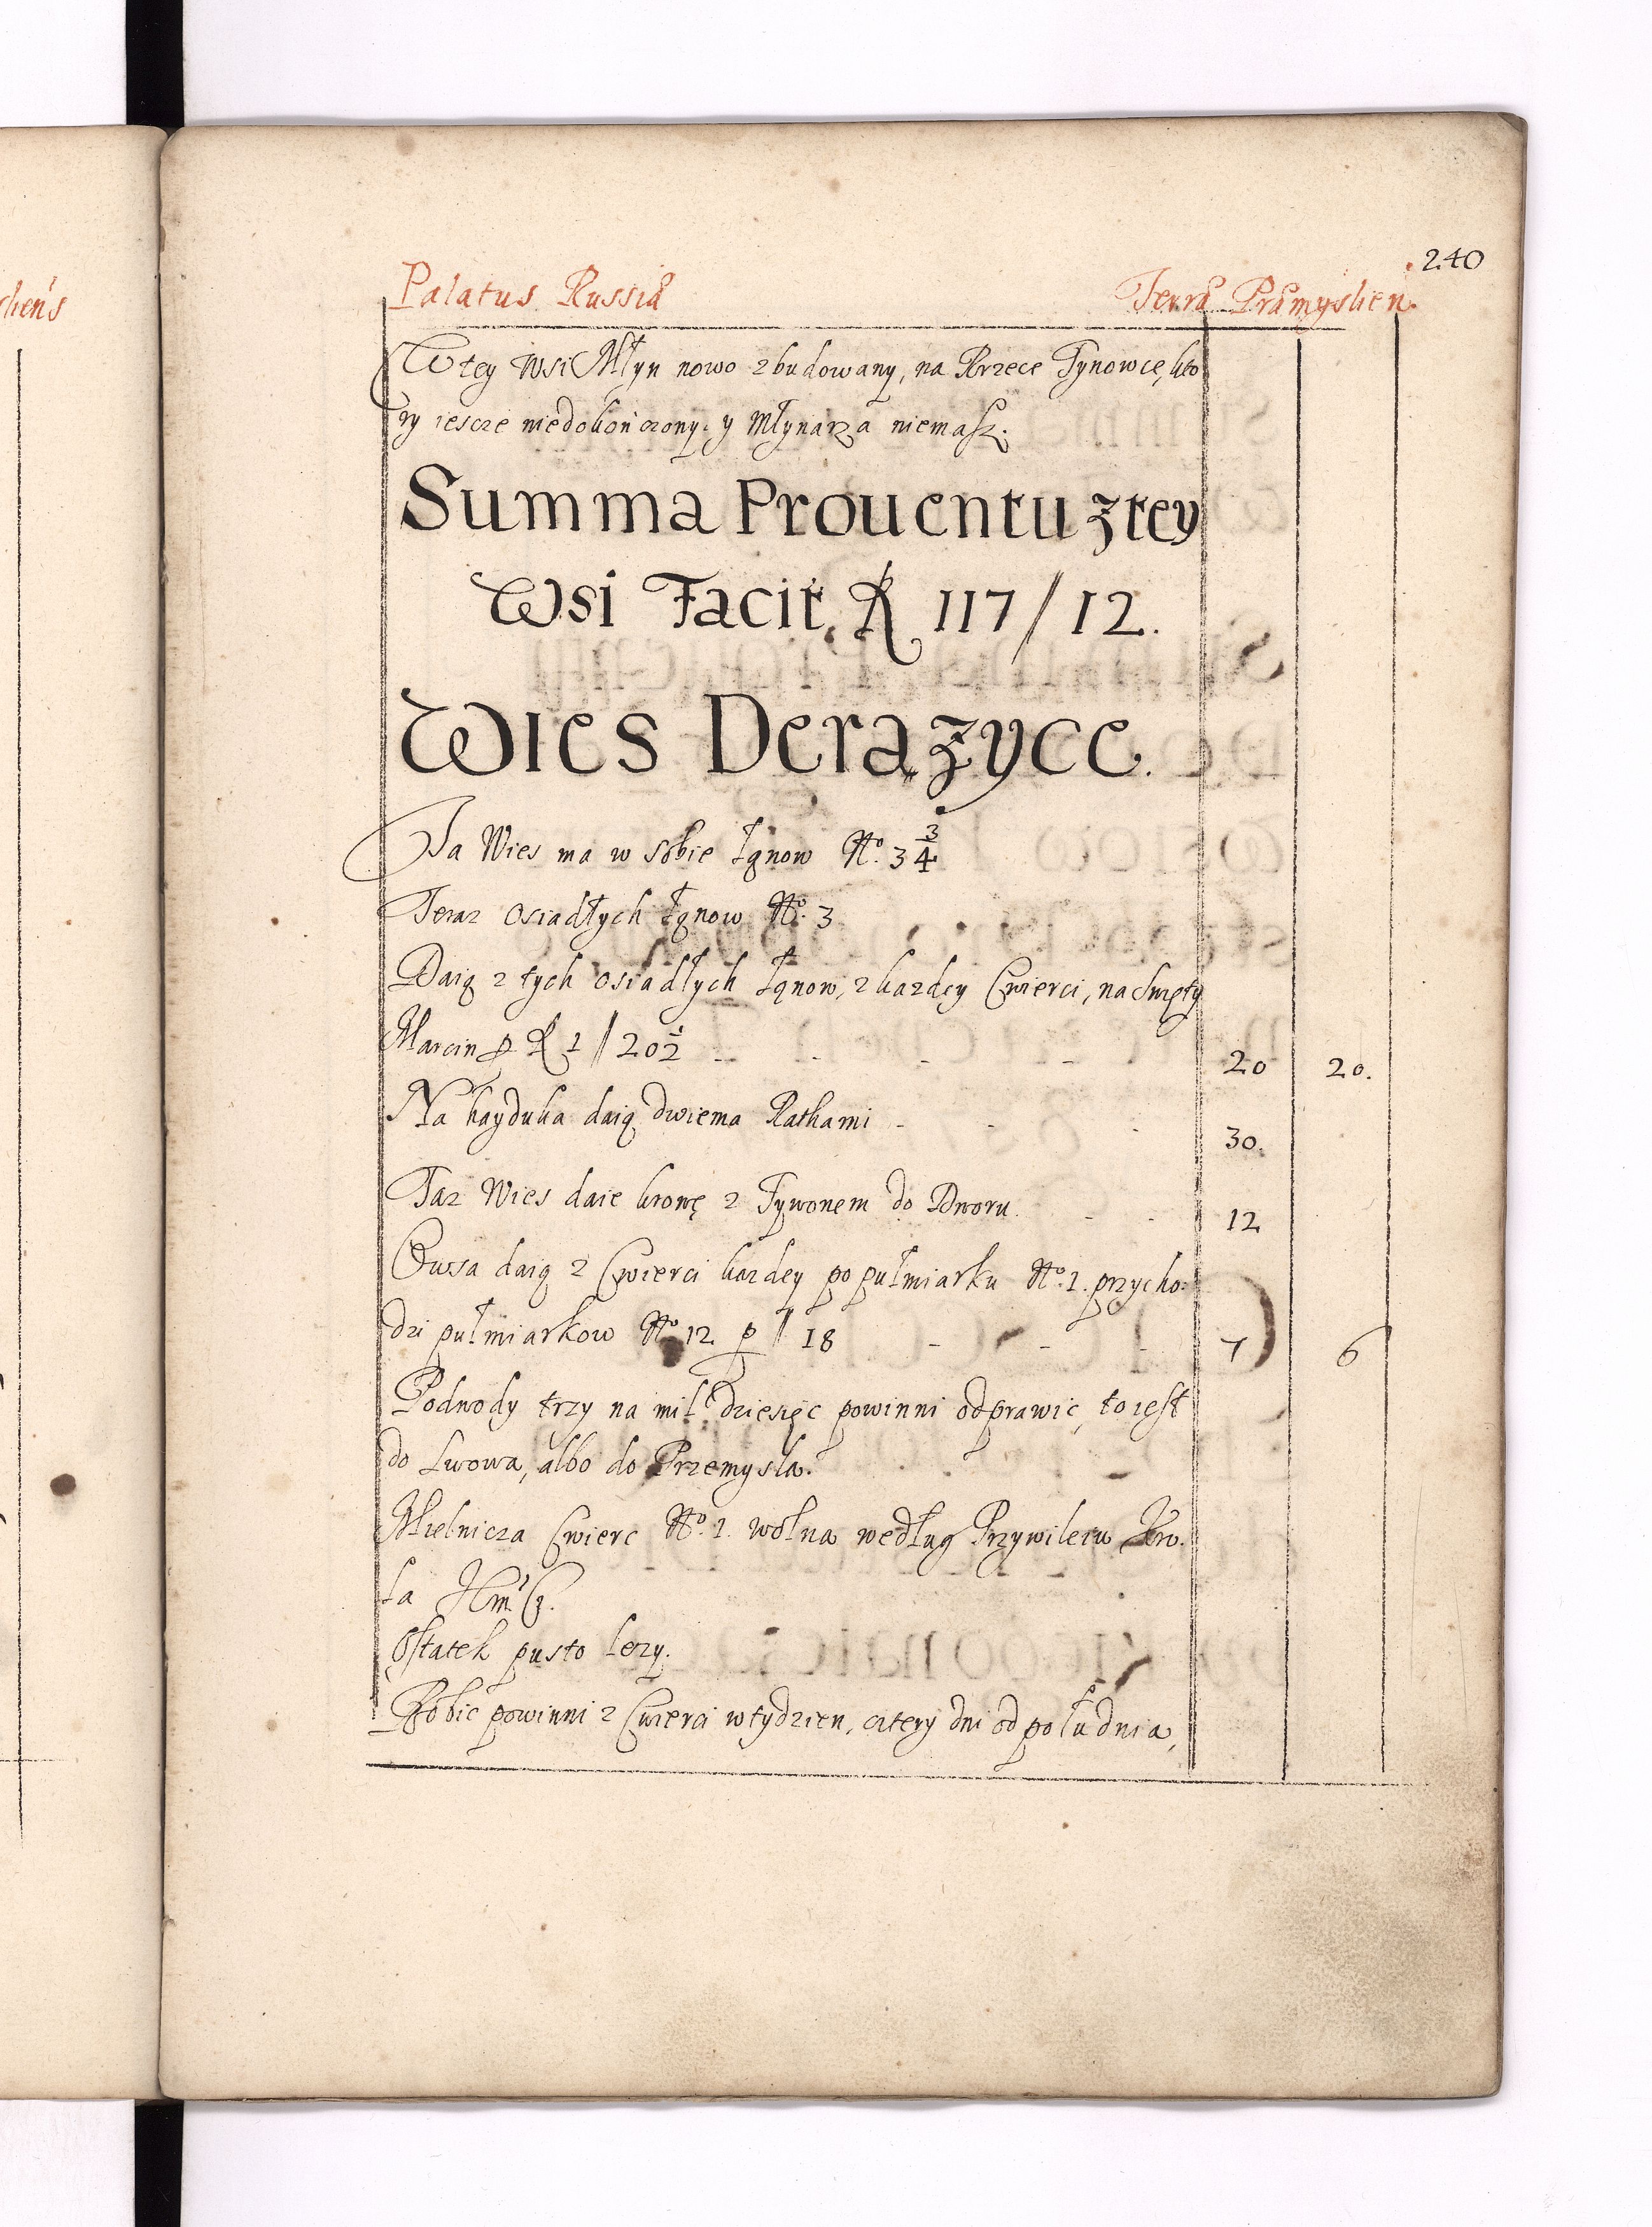 240
Palatus Russiæ Terræ Præmyslien.
W tey Wsi Młyn nowo zbudowany, na Rzece Tynowce, kto
ry iescze niedokończony, y Młynarza niemasz.
Summa Prouentu z tey
Wsi Facit, R 117/12.
Wies Derązyce.
Ta Wies ma w sobie łąnow No. 3 3/4
Teraz Osiadłych łąnow No. 3
Daią z tych osiadłych łąnow, z kazdey Cwierci, na Swięty
Marcin p R 1 // 20 1/2 - - - - 20 20.
Na hayduka daią dwiema Rathami - - - 30.
Taz Wies daie krowę z Tywonem do Dworu. - - 12
Owsa daią z Cwierci kazdey po pułmiarku No. 1. przycho-
dzi pułmiarkow No 12 p // 18 - - - 7 6
Podwody trzy na mil dziesięc powinni odprawic, to iest
do Lwowa, albo do Przemysla.
Mielnicza Cwierc No. 1. wolna według Przywileiu Kro.
la
Ostatek pusto lezy.
Robic powinni z Cwierci w tydzien, cztery dni od południa,